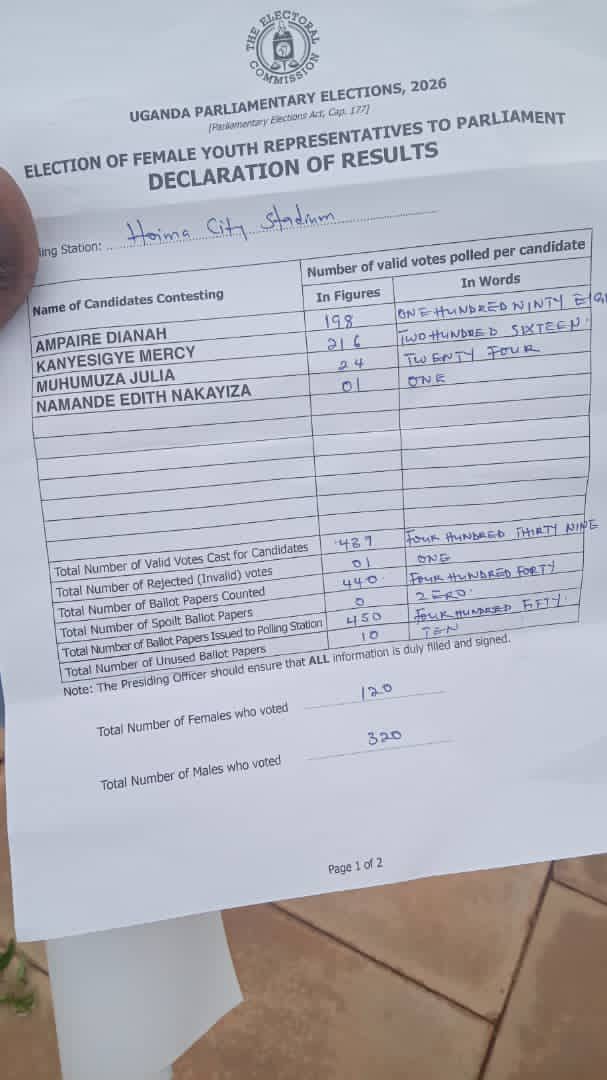 THE ELECTORAL COMMISSION
UGANDA PARLIAMENTARY ELECTIONS, 2026
[Parliamentary Elections Act, Cap. 177]
ELECTION OF FEMALE YOUTH REPRESENTATIVES TO PARLIAMENT
DECLARATION OF RESULTS
ing Station: Hoima City Stadium
Name of Candidates Contesting
Number of valid votes polled per candidate
In Figures In Words
AMPAIRE DIANAH 198 ONE HUNDRED NINTY EIG
KANYESIGYE MERCY 216 TWO HUNDRED SIXTEEN.
MUHUMUZA JULIA 24 TWENTY FOUR
NAMANDE EDITH NAKAYIZA 01 ONE
Total Number of Valid Votes Cast for Candidates 439 FOUR HUNDRED THIRTY NINE
Total Number of Rejected (Invalid) votes 01 ONE
Total Number of Ballot Papers Counted 440 FOUR HUNDRED FORTY
Total Number of Spoilt Ballot Papers 0 ZERO.
Total Number of Ballot Papers Issued to Polling Station 450 FOUR HUNDRED FIFTY.
Total Number of Unused Ballot Papers 10 TEN
Note: The Presiding Officer should ensure that ALL information is duly filled and signed.
Total Number of Females who voted 120
Total Number of Males who voted 320
Page 1 of 2